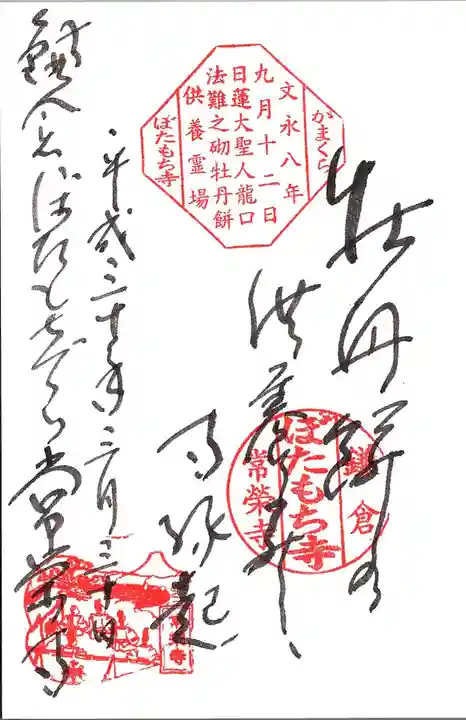 がまくら
文永八年
九月十二日
日蓮大聖人龍口
法難之砌牡丹餅
供養霊場
ぼたもち寺
牡丹餅
供養
鎌倉
ぼたもち寺
常榮寺
縁起
平成三十年三月三十日
鎌倉
ぼたもちでら常栄寺